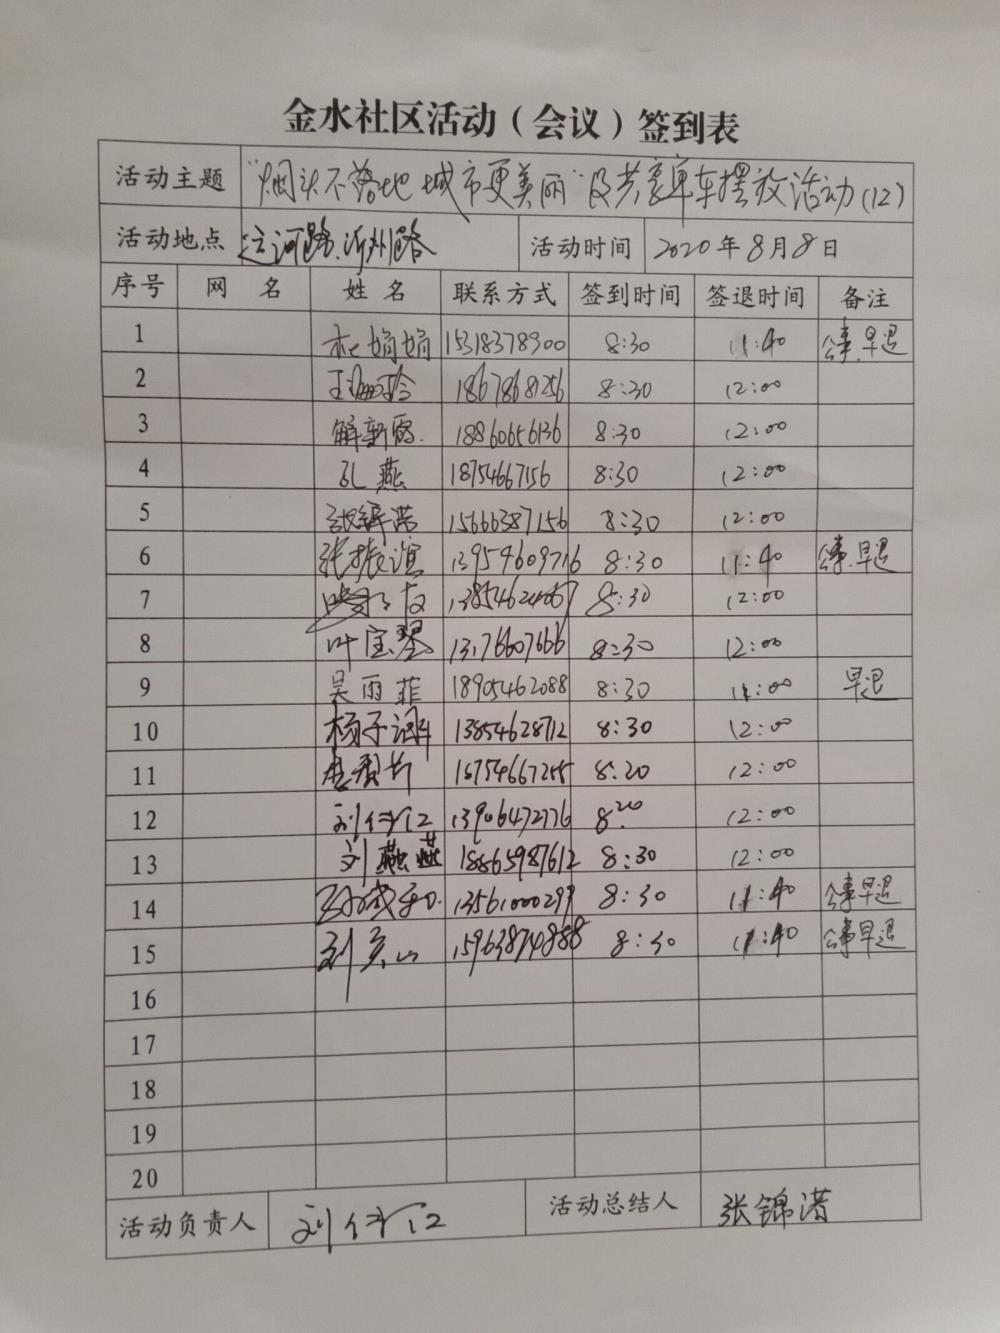 金水社区活动（会议）签到表
活动主题 "烟头不落地 城市更美丽"及共享单车摆放活动(12)
活动地点 运河路、沂州路 活动时间 2020年8月8日
序号 网 名 姓 名 联系方式 签到时间 签退时间 备注
1 杜娟娟 15318378900 8:30 11:40 公事.早退
2 18678681256 8:30 12:00
3 解新霞. 18860656136 8:30 12:00
4 孔燕 18754667156 8:30 12:00
5 15666387156 8:30 12:00
6 张振谊 13954609716 8:30 11:40 公事.早退
7 8:30 12:00
8 叶宝琴 8:30 12:00
9 吴雨菲 18905462088 8:30 11:00 早退
10 杨子 13854628712 8:30 12:00
11 8:20 12:00
12 刘 13906472776 8:20 12:00
13 刘燕燕 18865987612 8:30 12:00
14 孙成 13561000299 8:30 11:40 公事早退
15 刘 15963874888 8:30 11:40 公事早退
16
17
18
19
20
活动负责人 刘 活动总结人 张锦